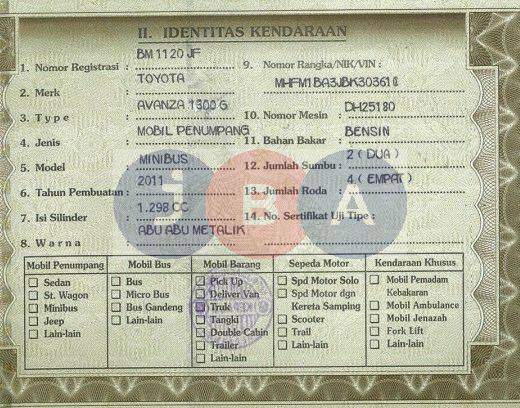 II. IDENTITAS KENDARAAN
1. Nomor Registrasi : BM 1120 JF
2. Merk : TOYOTA
3. Type : AVANZA 1300 G
4. Jenis : MOBIL PENUMPANG
5. Model : MINIBUS
6. Tahun Pembuatan : 2011
7. Isi Silinder : 1.298 CC
8. Warna : ABU ABU METALIK
9. Nomor Rangka/NIK/VIN :
MHFM1BA3JBK303610
10. Nomor Mesin : DH25180
11. Bahan Bakar : BENSIN
12. Jumlah Sumbu : 2 ( DUA )
13. Jumlah Roda : 4 ( EMPAT )
14. No. Sertifikat Uji Tipe :
JBA
Mobil Penumpang
Sedan
St. Wagon
Minibus
Jeep
Lain-lain
Mobil Bus
Bus
Micro Bus
Bus Gandeng
Lain-lain
Mobil Barang
Pick Up
Deliver Van
Truk
Tangki
Double Cabin
Trailer
Lain-lain
Sepeda Motor
Spd Motor Solo
Spd Motor dgn
Kereta Samping
Scooter
Trail
Lain-lain
Kendaraan Khusus
Mobil Pemadam
Kebakaran
Mobil Ambulance
Mobil Jenazah
Fork Lift
Lain-lain